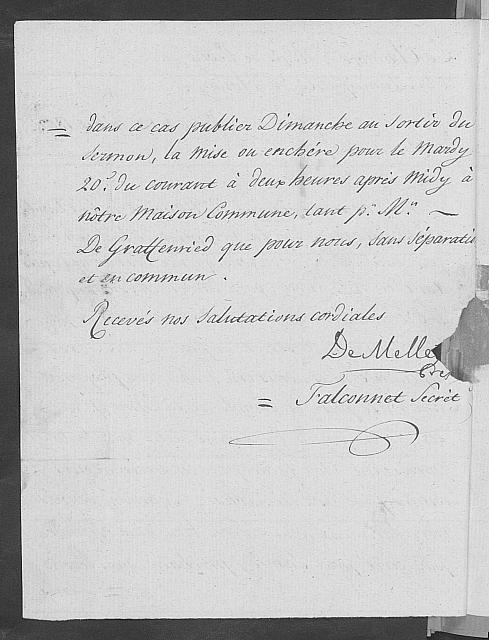 = dans ce cas publier Dimanche au Sortir du
Sermon, la mise ou enchére pour le Mardy
20.e du courant à deux heures après Midy à
nôtre Maison Commune, tant p.r M.r —
De Graffenried que pour nous, sans Séparatio
et en commun.
Recevés nos Salutations cordiales
De Melle
= Falconnet Secrèt